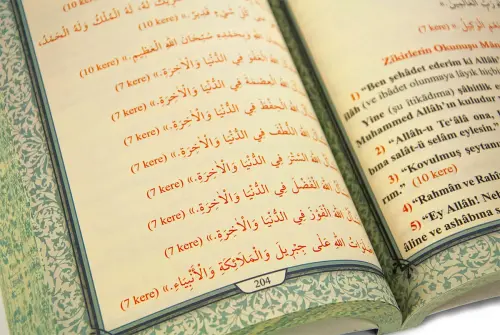 شَرِيكَ لَهُ، لَهُ الْمُلْكُ وَلَهُ الْحَمْدُ،
كُلِّ شَيْءٍ قَدِيرٌ.» (10 kere)
وَبِحَمْدِهِ سُبْحَانَ اللهِ الْعَظِيمِ.» (10 kere)
اللهَ الْعَفْوَ فِي الدُّنْيَا وَالْاٰخِرَةِ.» (7 kere)
اللهَ الْعِصْمَةَ فِي الدُّنْيَا وَالْاٰخِرَةِ.» (7 kere)
اللهَ الْحِفْظَ فِي الدُّنْيَا وَالْاٰخِرَةِ.» (7 kere)
اللهَ اللُّطْفَ فِي الدُّنْيَا وَالْاٰخِرَةِ.» (7 kere)
اللهَ السَّتْرَ فِي الدُّنْيَا وَالْاٰخِرَةِ.» (7 kere)
اللهَ الْفَضْلَ فِي الدُّنْيَا وَالْاٰخِرَةِ.» (7 kere)
اللهَ الْفَوْزَ فِي الدُّنْيَا وَالْاٰخِرَةِ.» (7 kere)
اللهِ عَلَى جِبْرِيلَ وَالْمَلَائِكَةِ وَالْأَنْبِيَاءِ.» (7 kere)
204
الْوَكِيلُ.» (7 kere)
Zikirlerin Okunuşu
1) "Ben şehâdet ederim ki Allâh
(ve ibâdet olunmaya lâyık
Yine (şu îtikâdıma) şâhitlik
Muhammed Allâh'ın kuludur
2) "Allâh-u Te'âlâ ona,
bına salât-ü selâm eylesin."
3) "Kovulmuş şeytan
rım." (10 kere)
4) "Rahmân ve
5) "Ey Allâh!
âline ve ashâbına